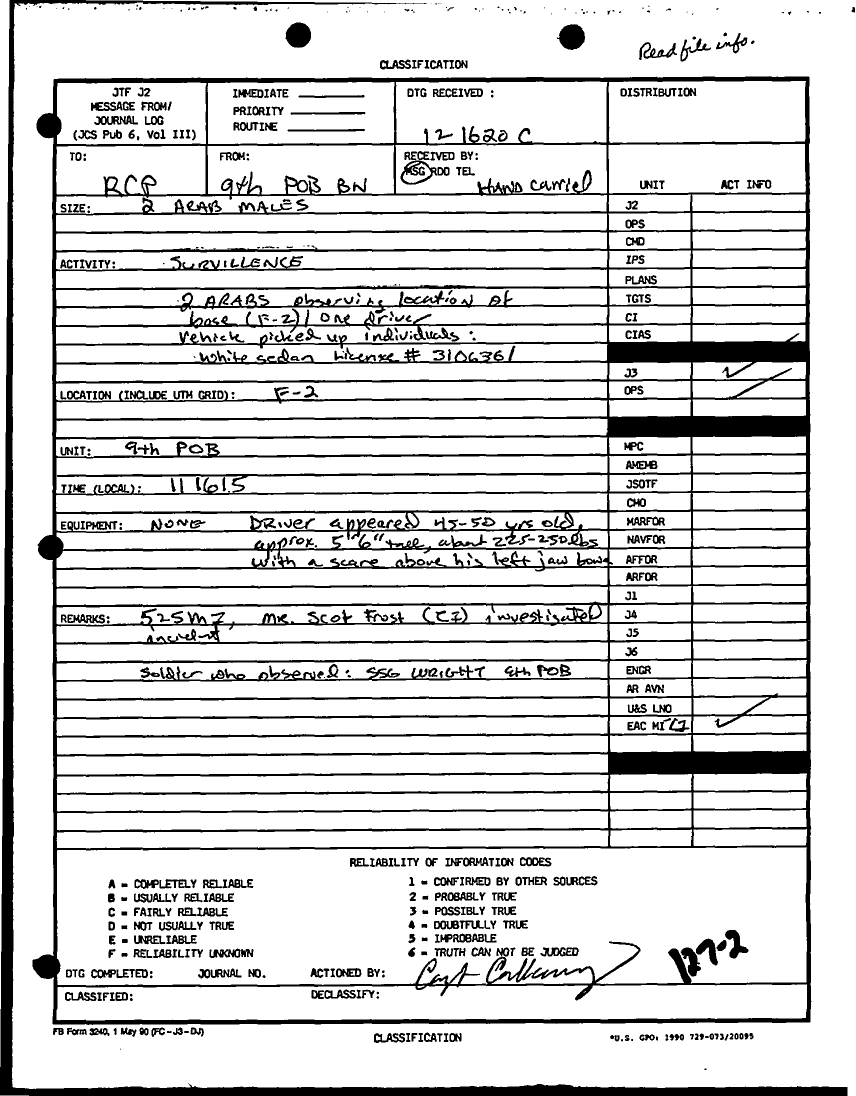 Read file info.
CLASSIFICATION
JTF J2
MESSAGE FROM/
JOURNAL LOG
(JCS Pub 6, Vol III)
IMMEDIATE
PRIORITY
ROUTINE
DTG RECEIVED :
12 1620 C
DISTRIBUTION
TO:
RCP
FROM:
9th POB BN
RECEIVED BY:
MSG RDO TEL
HAND carried
UNIT ACT INFO
SIZE: 2 ARAB MALES
ACTIVITY: SURVILLENCE
2 ARABS observing location of
base (F-2) / One driver
vehicle picked up individuals :
white sedan License # 3106361
LOCATION (INCLUDE UTM GRID): F-2
UNIT: 9th POB
TIME (LOCAL): 11 1615
EQUIPMENT: NONE DRIVER appeared 45-50 yrs old,
approx. 5'6" tall, about 225-250 lbs
with a scare above his left jaw bone
REMARKS: 525 MI, MR. Scot Frost (CI) investigated
incident
Soldier who observed: SSG WRIGHT 9th POB
J2
OPS
CMD
IPS
PLANS
TGTS
CI
CIAS
J3
OPS
MPC
AMEMB
JSOTF
CMO
MARFOR
NAVFOR
AFFOR
ARFOR
J1
J4
J5
J6
ENGR
AR AVN
U&S LNO
EAC MI CI
RELIABILITY OF INFORMATION CODES
A = COMPLETELY RELIABLE
B = USUALLY RELIABLE
C = FAIRLY RELIABLE
D = NOT USUALLY TRUE
E = UNRELIABLE
F = RELIABILITY UNKNOWN
1 = CONFIRMED BY OTHER SOURCES
2 = PROBABLY TRUE
3 = POSSIBLY TRUE
4 = DOUBTFULLY TRUE
5 = IMPROBABLE
6 = TRUTH CAN NOT BE JUDGED
DTG COMPLETED: JOURNAL NO. ACTIONED BY: Capt
127-2
CLASSIFIED: DECLASSIFY:
FB Form 3240, 1 May 90 (FC-J3-DJ)
CLASSIFICATION
*U.S. GPO: 1990 729-073/20095